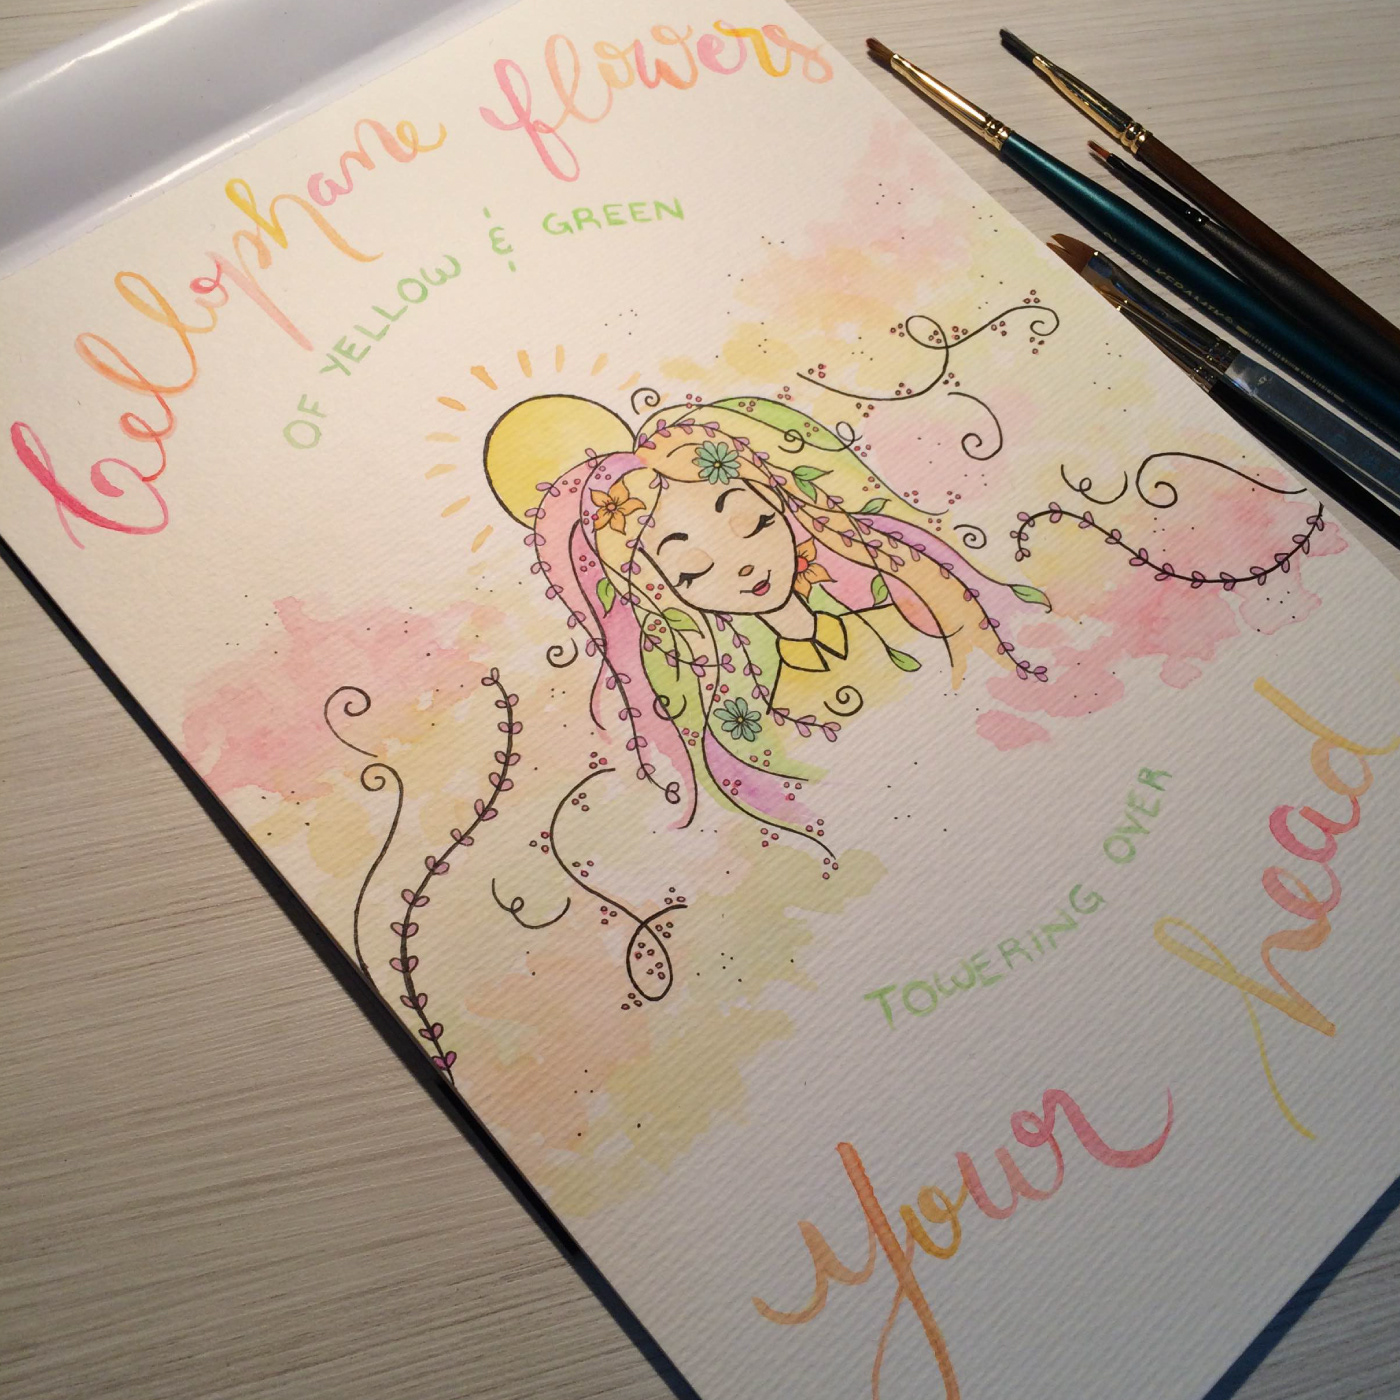 Cellophane flowers
OF YELLOW & GREEN
TOWERING OVER
Your head